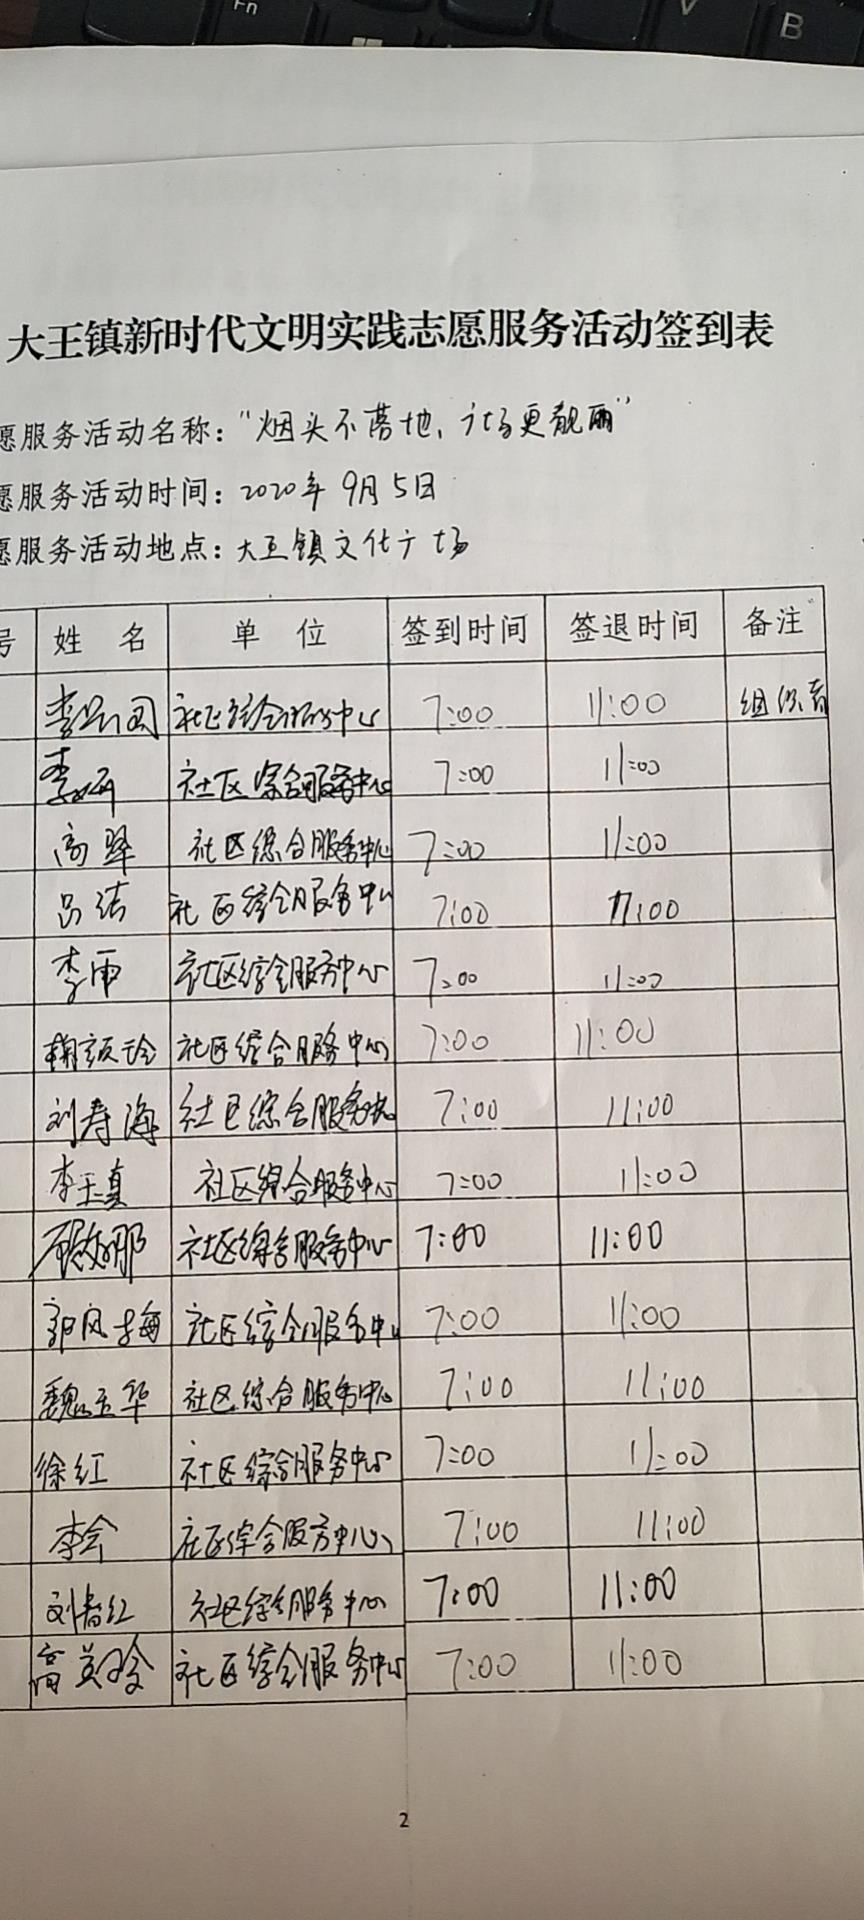 大王镇新时代文明实践志愿服务活动签到表
愿服务活动名称："烟头不落地，市场更靓丽"
愿服务活动时间：2020年9月5日
愿服务活动地点：大王镇文化广场
号 姓 名 单 位 签到时间 签退时间 备注
社区综合服务中心 7:00 11:00 组织者
李妍 社区综合服务中心 7:00 11:00
高翠 社区综合服务中心 7:00 11:00
吕洁 社区综合服务中心 7:00 11:00
李雨 社区综合服务中心 7:00 11:00
社区综合服务中心 7:00 11:00
刘寿海 社区综合服务中心 7:00 11:00
李玉真 社区综合服务中心 7:00 11:00
社区综合服务中心 7:00 11:00
郭凤梅 社区综合服务中心 7:00 11:00
魏玉华 社区综合服务中心 7:00 11:00
徐红 社区综合服务中心 7:00 11:00
李会 社区综合服务中心 7:00 11:00
刘春红 社区综合服务中心 7:00 11:00
高英玲 社区综合服务中心 7:00 11:00
2
Fn
V
B